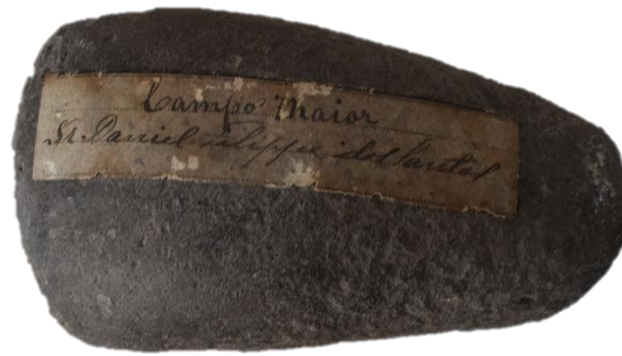 Campo Maior
Sr. Daniel Filippe dos Santos